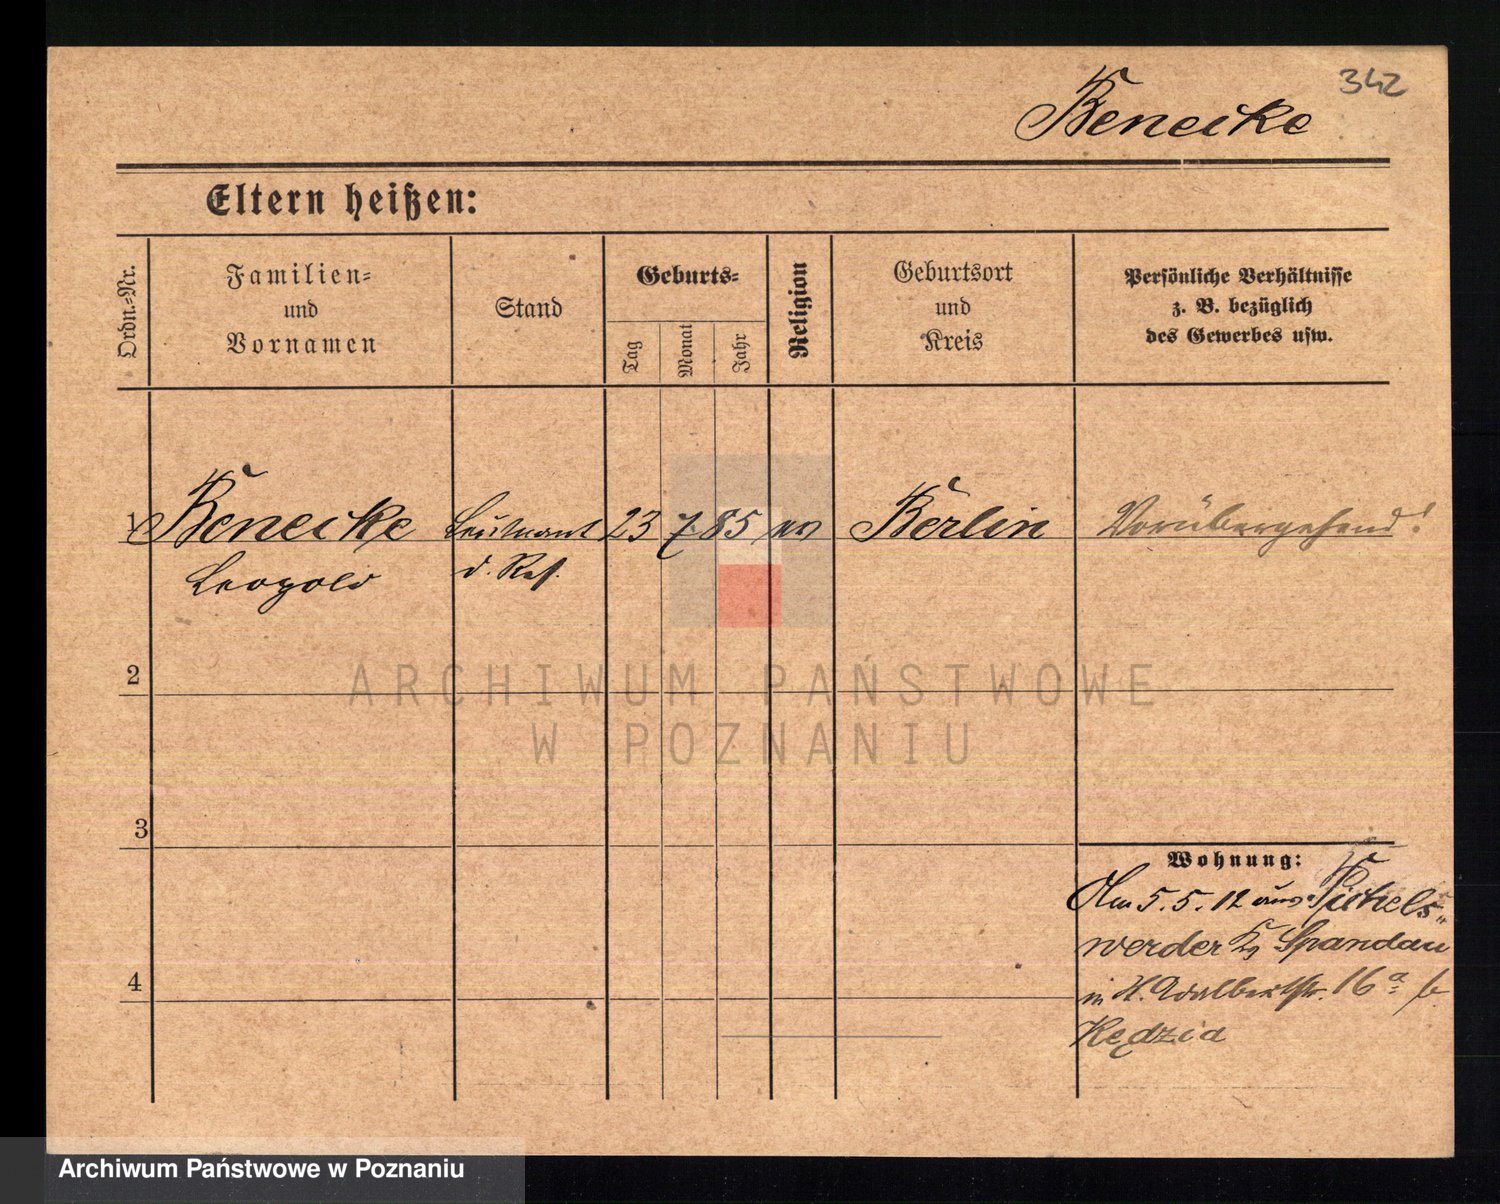 342
Benecke
Eltern heißen:
Ordn.-Nr.
Familien-
und
Vornamen
Stand
Geburts-
Tag
Monat
Jahr
Religion
Geburtsort
und
Kreis
Persönliche Verhältnisse
z. B. bezüglich
des Gewerbes usw.
1 Benecke Leutnant 23 7 85 ev Berlin Vorübergehend!
Leopold d. Res.
2
ARCHIWUM PAŃSTWOWE
W POZNANIU
3
Wohnung:
Am 5.5.12 aus Pichels„
werder Krs Spandau
in St. Adalbertstr. 16 a b.
Kędzia
4
Archiwum Państwowe w Poznaniu